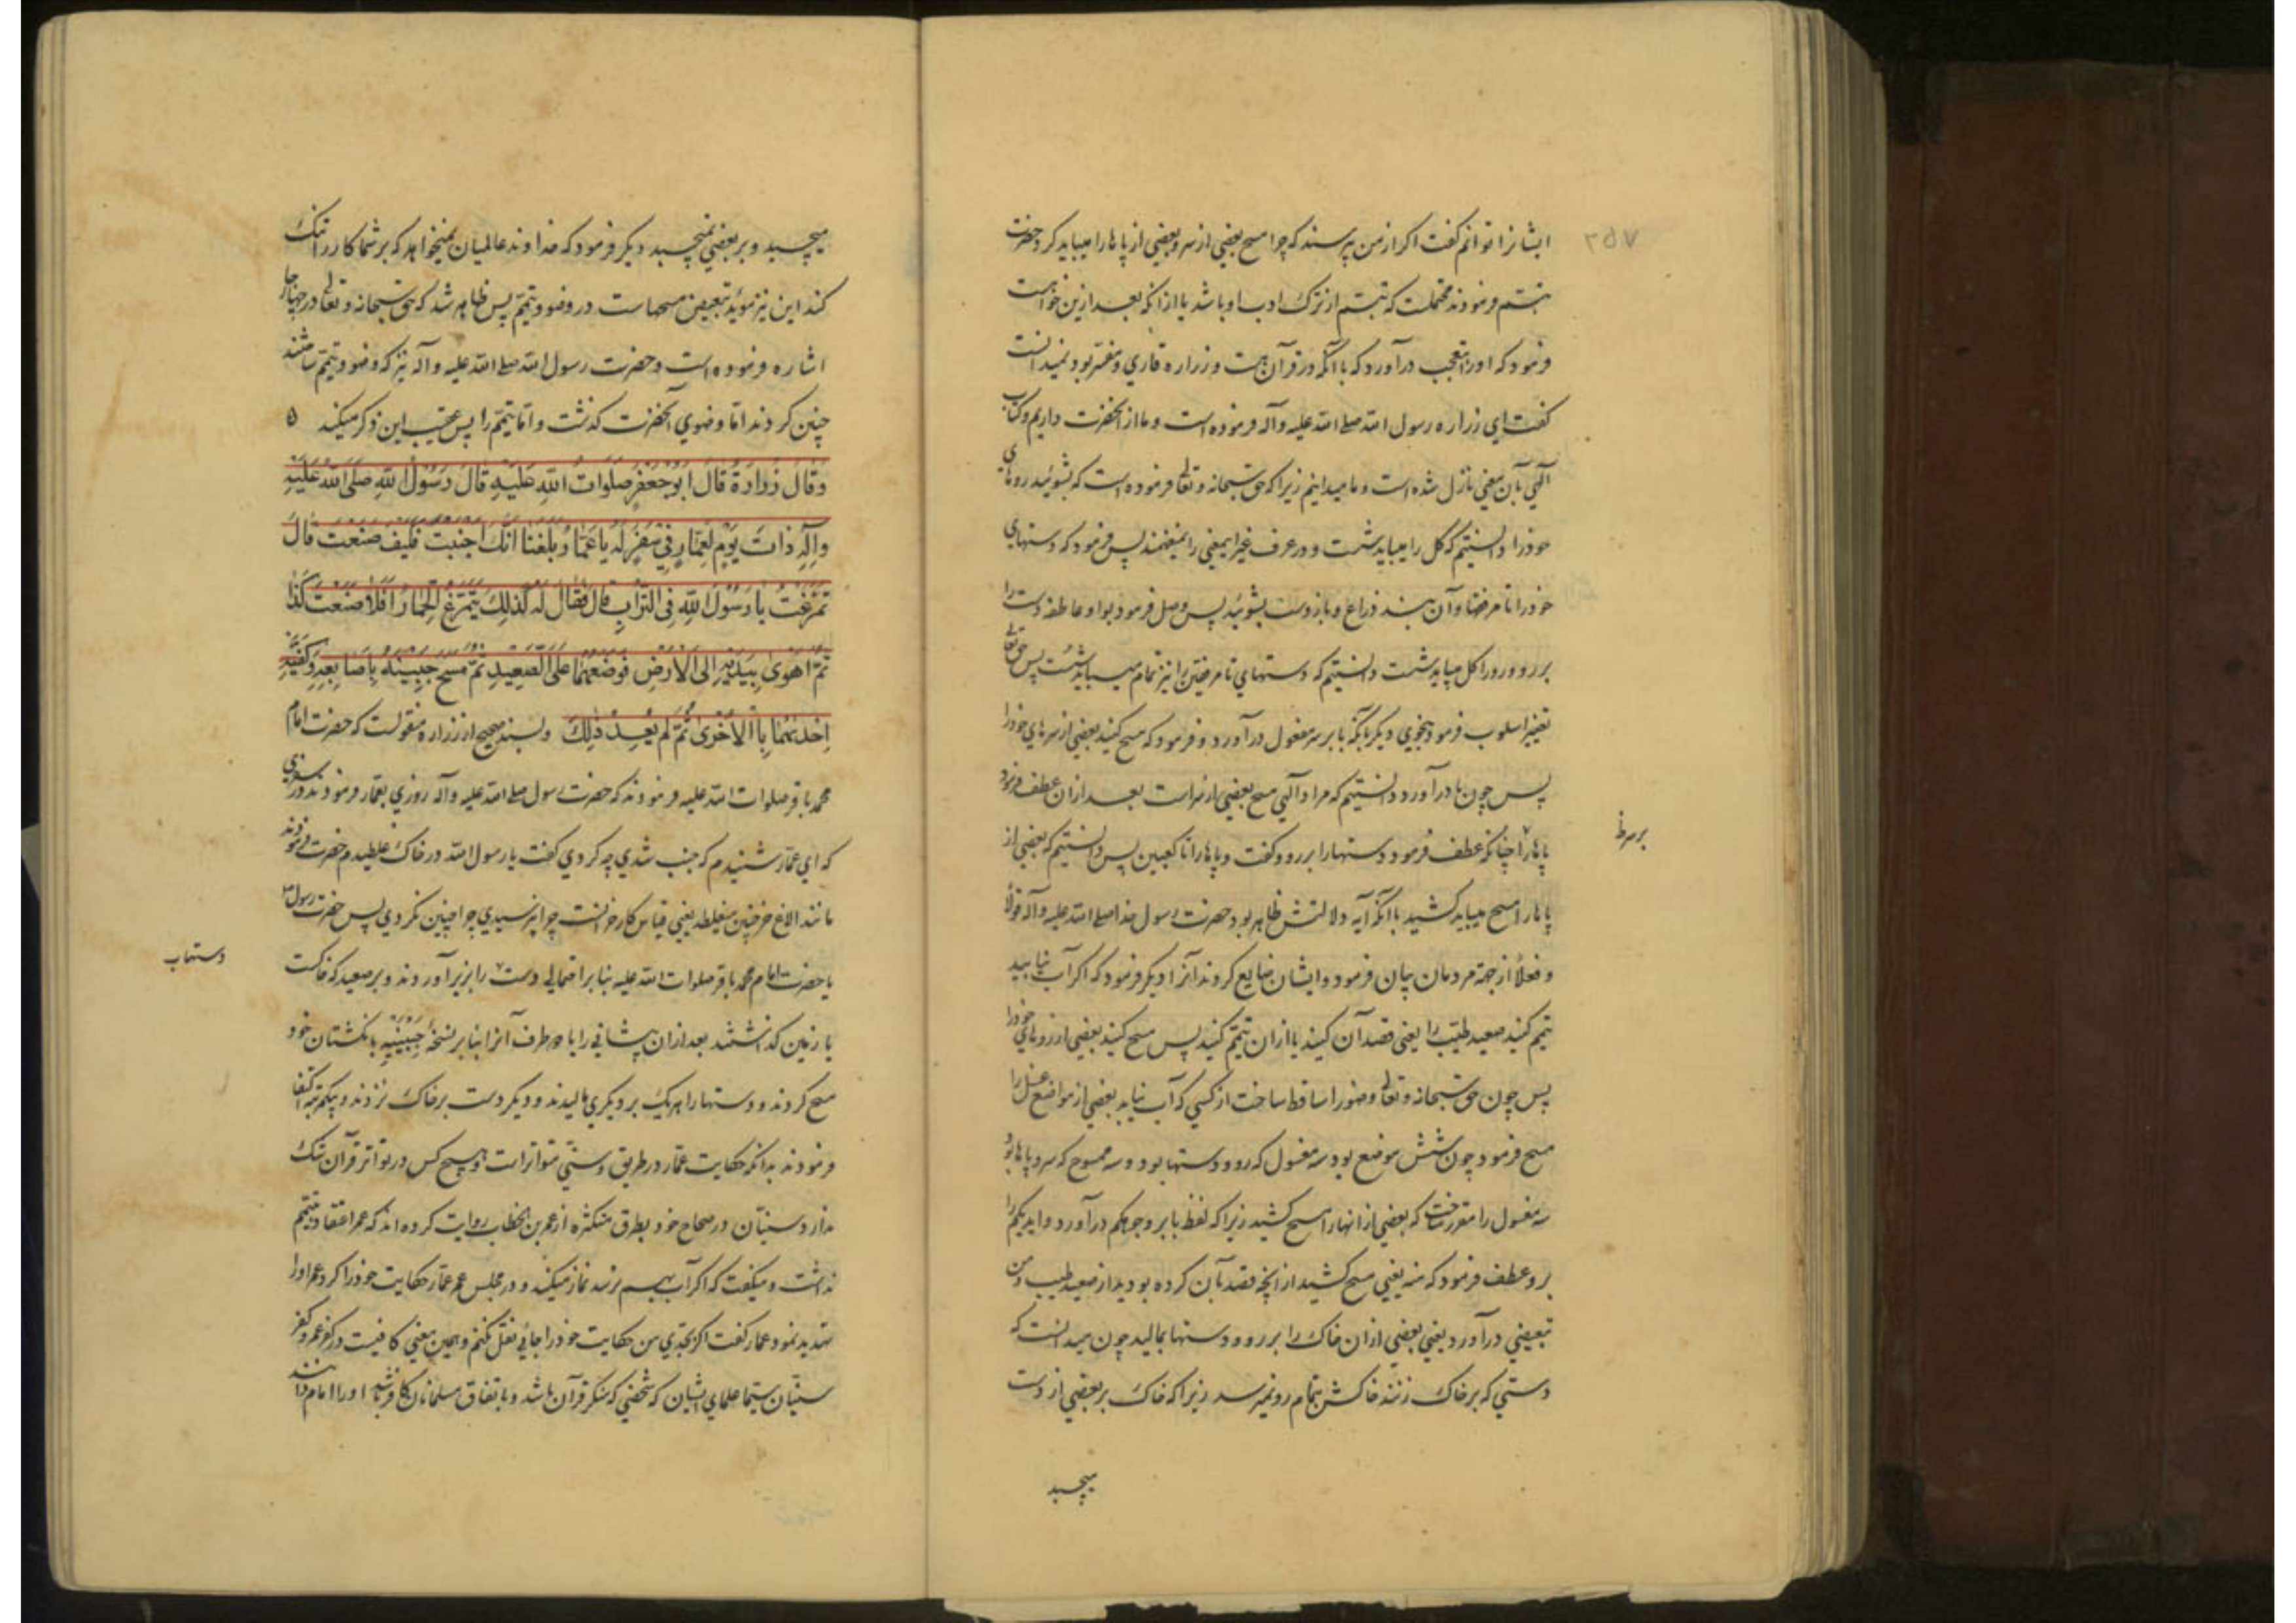 ۲۵۷
ایشانرا توانم کفت اکر از من پرسند که چرا مسح بعضی از سر و بعضی از پاها را میباید کرد حضرت
تبسم فرمودند محتملست که تبسم از ترک ادب او باشد یا از انکه بعد ازین خواست
فرمود که او را تعجب درآورد که با آنکه در قرآن هست و زراره قاری و مفسر بود نمیدانست
کفت ای زراره رسول الله صلی الله علیه وآله فرموده است و ما از آنحضرت داریم و کتاب
آلهی بآن معنی نازل شده است و ما میدانیم زیرا که حق سبحانه و تعالی فرموده است که بشوئید روهای
خود را دانستیم که کل را میباید شست و در عرف غیر اینمعنی را نمیفهمند پس فرمود که دستهای
خود را تا مرفقها و آن بند ذراع و بازوست بشوئید پس وصل فرمود بواو عاطفه دست را
بر رو و رو را کل میباید شست دانستیم که دستهای تا مرفقین را نیز تمام میباید شست پس حق تعالی
تغییر اسلوب فرمود بنحوی دیکر بآنکه با بر سر مفعول درآورد و فرمود که مسح کنید بعضی از سرهای خود را
پس چون با درآورد دانستیم که مراد آلهی مسح بعضی از سر است بعد ازان عطف فرمود
پاها را چنانکه عطف فرمود دستها را بر رو و کفت و پاها را تا کعبین پس دانستیم که بعضی از
بر سر ظ
پاها را مسح میباید کشید با آنکه آیه دلالتش ظاهر بود حضرت رسول خدا صلی الله علیه وآله قولاً
و فعلاً از جهة مردمان بیان فرمود و ایشان ضایع کردند آنرا دیکر فرمود که اکر آب نیابید
تیمم کنید صعید طیب را یعنی قصد آن کنید یا ازان تیمم کنید پس مسح کنید بعضی از روهای خود را
پس چون حق سبحانه و تعالی وضو را ساقط ساخت از کسی که آب نیابد بعضی از مواضع غسل را
مسح فرمود چون شش موضع بود سه مغسول که رو و دستها بود و سه ممسوح که سر و پاها بود
سه مغسول را مقرر ساخت که بعضی از انها را مسح کشید زیرا که لفظ با بر وجوهکم درآورد و ایدیکم را
برو عطف فرمود که منه یعنی مسح کشید از انچه قصد بآن کرده بودید از صعید طیب و من
تبعیضی درآورد یعنی بعضی ازان خاک را بر رو و دستها بمالید چون میدانست که
دستی که بر خاک زنند خاکش بتمام رو نمیرسد زیرا که خاک بر بعضی از دست
میچسبد
میچسبد و بر بعضی نمیچسبد دیکر فرمود که خداوند عالمیان نمیخواهد که بر شما کار را تنک
کند این نیز مویّد تبعیض مسحهاست در وضو و تیمم پس ظاهر شد که حق سبحانه و تعالی در چهار جا
اشاره فرموده است و حضرت رسول الله صلی الله علیه وآله نیز که وضو و تیمم ساختند
چنین کردند اما وضوی آنحضرت کذشت و اما تیمم را پس عقیب این ذکر میکند ٥
وَقَالَ زُرَارَةُ قَالَ اَبُو جَعْفَرٍ صَلَوَاتُ اللهِ عَلَيْهِ قَالَ رَسُولُ اللهِ صَلَّى اللهُ عَلَيْهِ
وَآلِهِ ذَاتَ يَوْمٍ لِعَمَّارٍ فِي سَفَرٍ لَهُ يَا عَمَّارُ بَلَغَنَا اَنَّكَ اَجْنَبْتَ فَكَيْفَ صَنَعْتَ قَالَ
تَمَرَّغْتُ يَا رَسُولَ اللهِ فِي التُّرَابِ قَالَ فَقَالَ لَهُ كَذَلِكَ يَتَمَرَّغُ الْحِمَارُ اَفَلَا صَنَعْتَ كَذَا
ثُمَّ اَهْوٰى بِيَدَيْهِ اِلَى الْاَرْضِ فَوَضَعَهُمَا عَلَى الصَّعِيدِ ثُمَّ مَسَحَ جَبِينَيْهِ بِاَصَابِعِهِ وَكَفَّيْهِ
اِحْدٰيهُمَا بِالْاُخْرٰى ثُمَّ لَمْ يُعِدْ ذٰلِكَ وبسند صحیح از زراره منقولست که حضرت امام
محمد باقر صلوات الله علیه فرمودند که حضرت رسول صلی الله علیه وآله روزی بعمار فرمودند در سفری
که ای عمّار شنیدم که جنب شدی چه کردی کفت یا رسول الله در خاک غلطیدم حضرت فرمودند
مانند الاغ خر چنین میغلطد یعنی قیاس کار خرانست چرا نپرسیدی چرا چنین نکردی پس حضرت رسول
یا حضرت امام محمد باقر صلوات الله علیه بنا بر احتمالی دست را بزیر آوردند و بر صعید که خاکست
دستها ب
یا زمین کذاشتند بعد ازان پیشانی را یا دو طرف آنرا بنا بر نسخهٔ جَبِینَیْهِ بانکشتان خود
مسح کردند و دستها را هر یک بر دیکری مالیدند و دیکر دست بر خاک نزدند و بیکمرتبه اکتفا
فرمودند بدانکه حکایت عمّار در طریق وسنّی متواتر است و هیچ کس در تواتر قرآن شک
ندارد و سنیان در صحاح خود بطرق متکثره از عمر بن الخطاب روایت کرده اند که عمر اعتقاد بتیمم
نداشت و میکفت که اکر آب بهم نرسد نماز میکند و در مجلس عمر عمّار حکایت خود را کرد عمر او را
تهدید نمود عمار کفت اکر نمیخواهی من حکایت خود را جائی نقل نکنم و همین معنی کافیست در کفر عمر و کفر
سنیّان سیّما علمای ایشان که شخصی که منکر قرآن باشد و باتفاق مسلمانان کافر باشد او را امام دانند